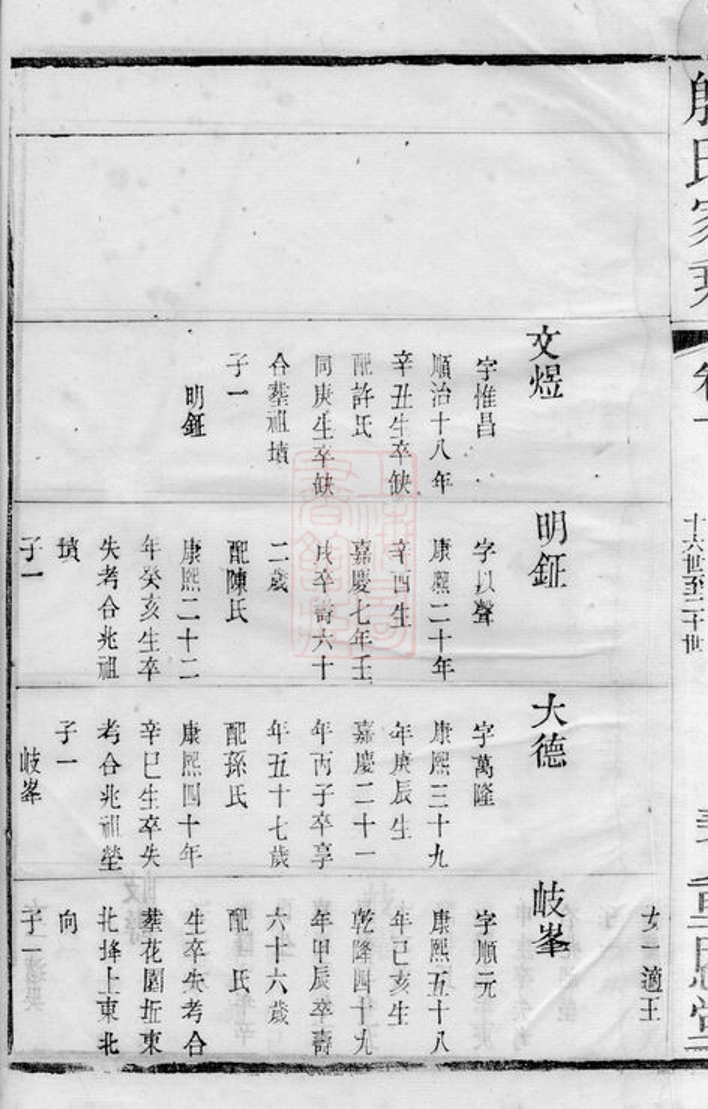 氏家乘
卷一
十六世至二十世
恩堂
文煜
字惟昌
順治十八年
辛丑生卒缺
配許氏
同庚生卒缺
合葬祖墳
子一
明鉦
明鉦
字以聲
康熙二十年
辛酉生
嘉慶七年壬
戌卒壽六十
二歲
配陳氏
康熙二十二
年癸亥生卒
失考合兆祖
墳
子一
大德
字萬隆
康熙三十九
年庚辰生
嘉慶二十一
年丙子卒享
年五十七歲
配孫氏
康熙四十年
辛巳生卒失
考合兆祖塋
子一
岐峯
女一適王
岐峯
字順元
康熙五十八
年己亥生
乾隆四十九
年甲辰卒壽
六十六歲
配 氏
生卒失考合
葬花園坵東
北埄上東北
向
子一